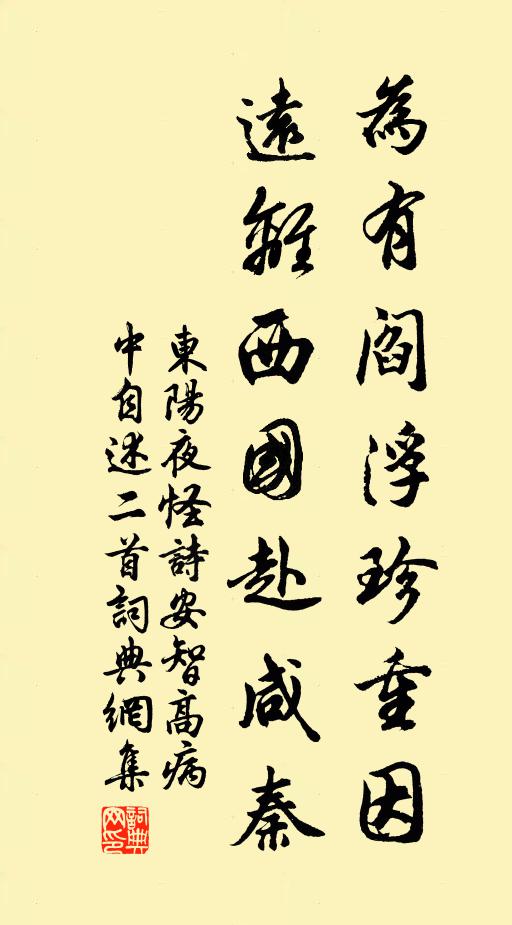 為有閻浮珍重因
遠離西國赴咸秦
東陽夜怪詩安智高病
中自述二首詞典網集
詞典
网印